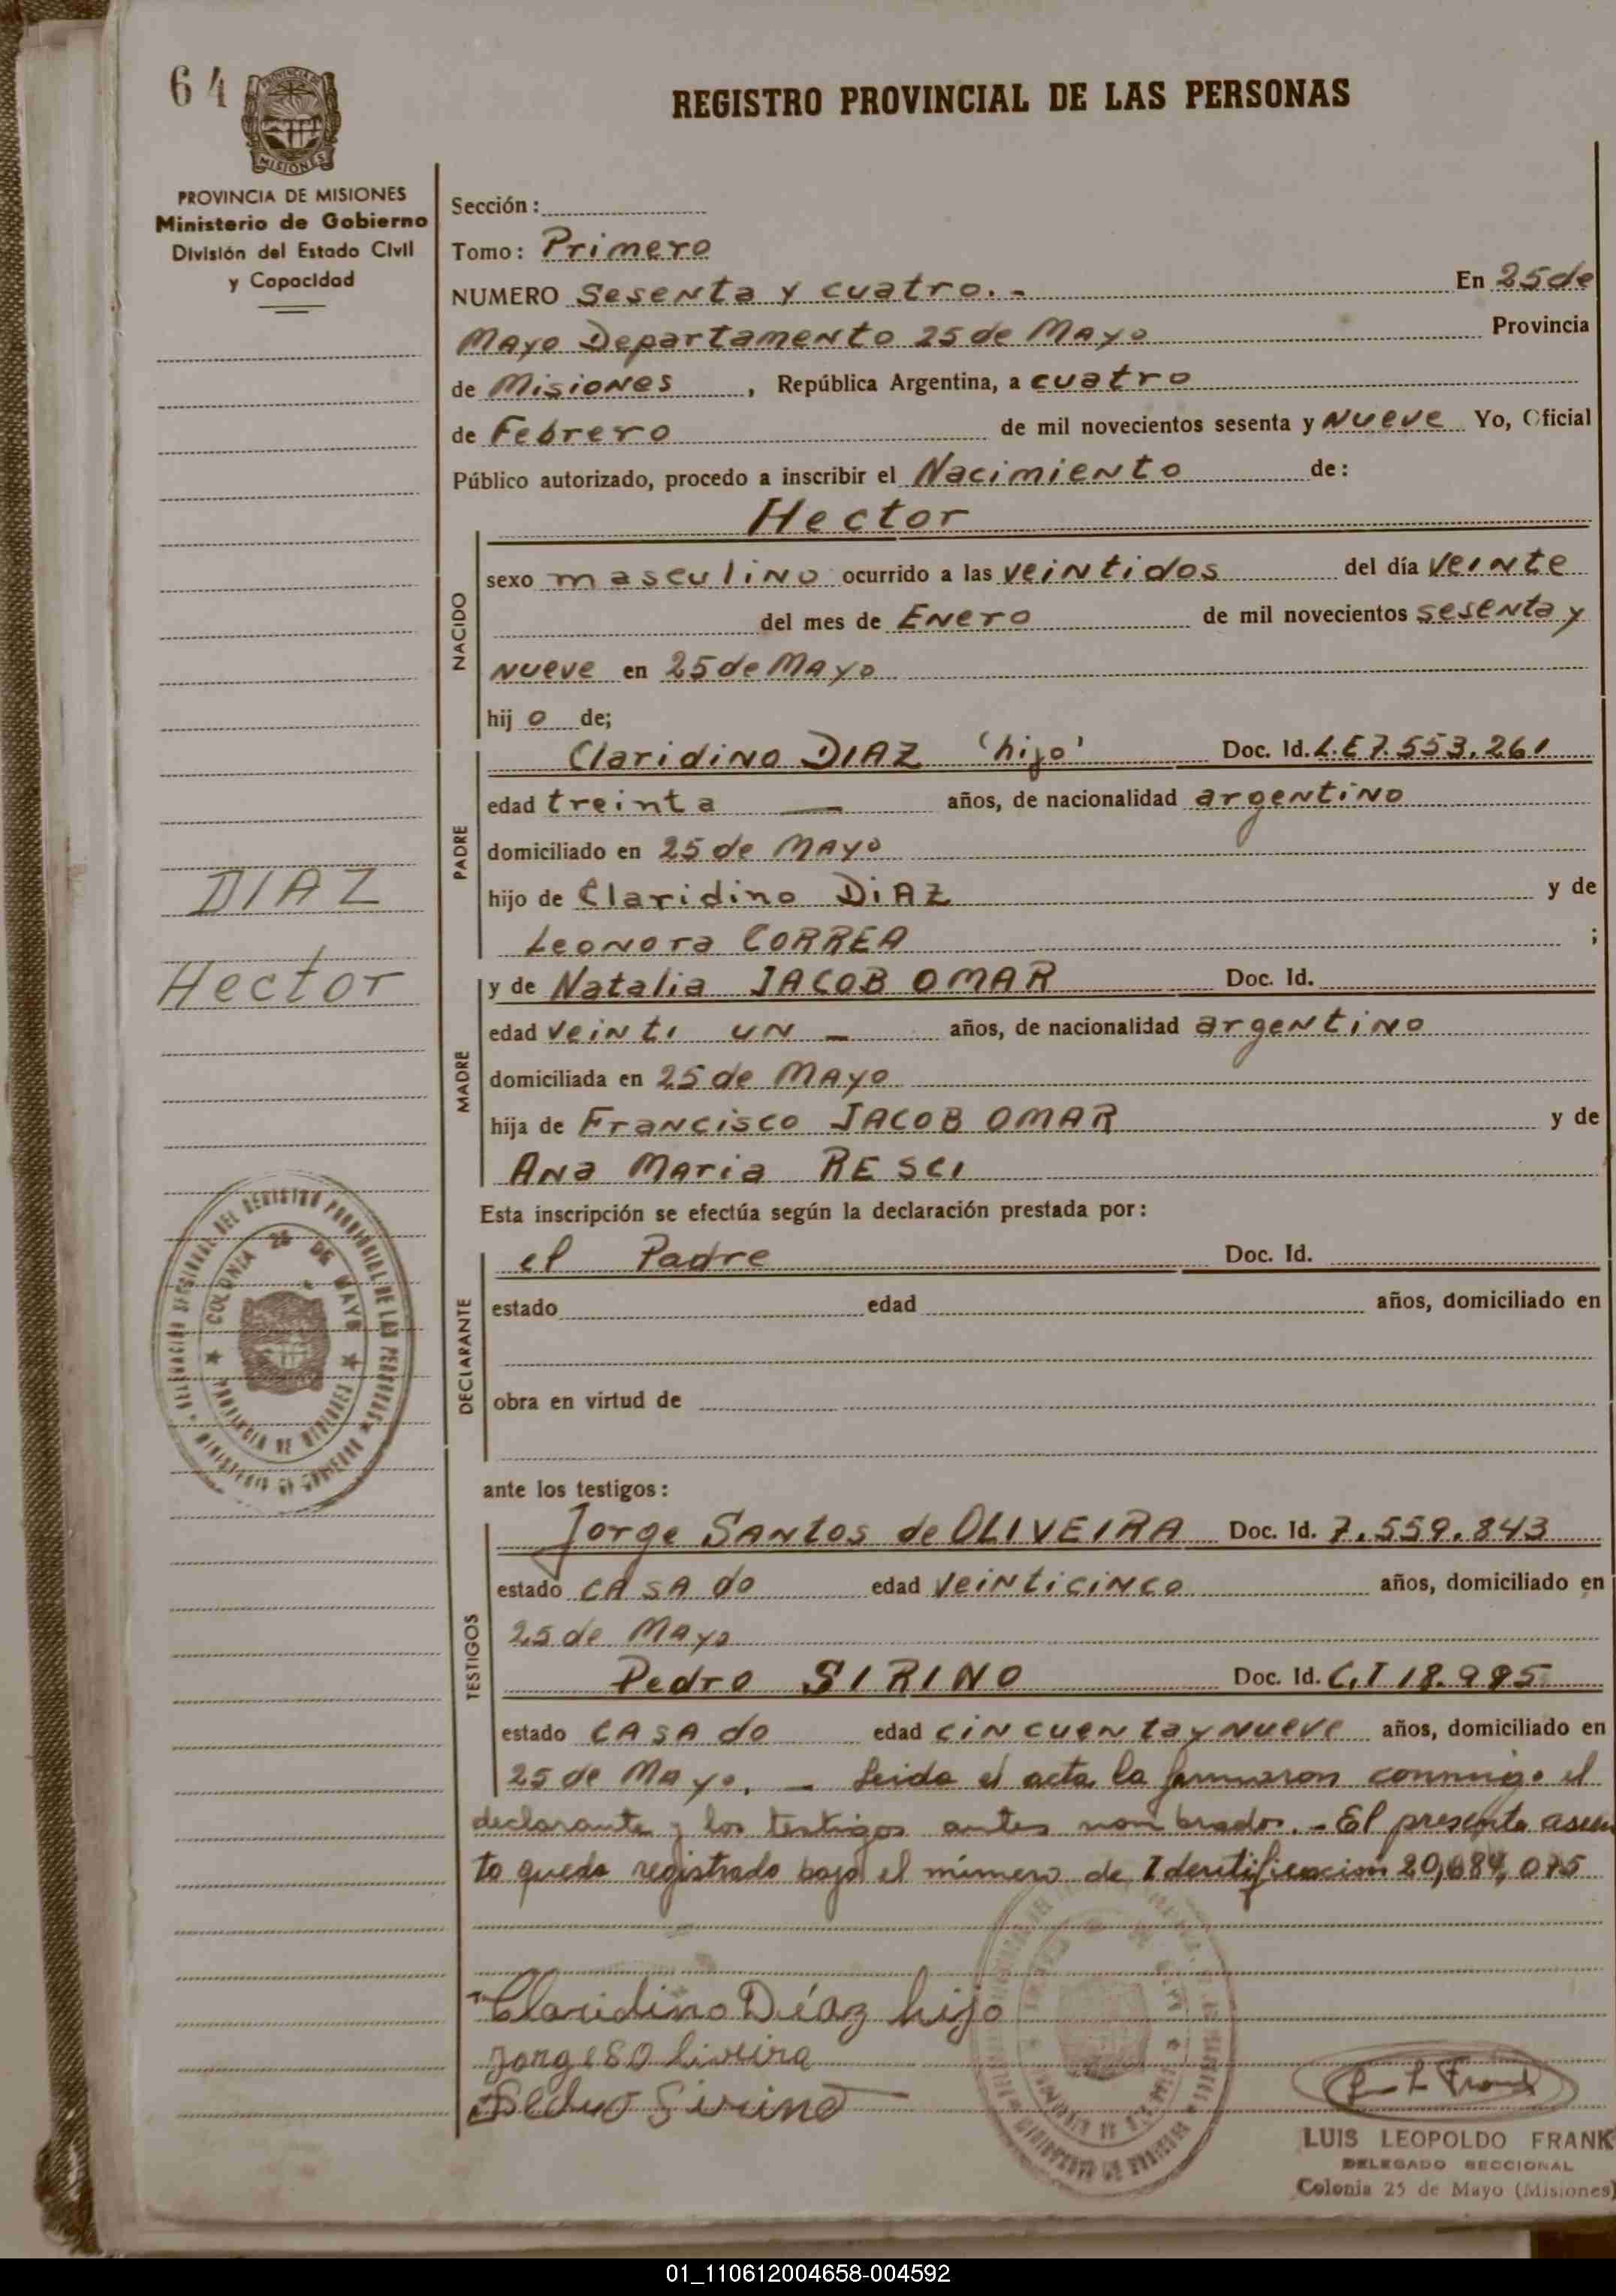 64
PROVINCIA DE
MISIONES
REGISTRO PROVINCIAL DE LAS PERSONAS
PROVINCIA DE MISIONES
Ministerio de Gobierno
División del Estado Civil
y Capacidad
Sección:
Tomo: Primero
NUMERO Sesenta y cuatro. - En 25 de
Mayo Departamento 25 de Mayo Provincia
de Misiones, República Argentina, a cuatro
de Febrero de mil novecientos sesenta y nueve Yo, Oficial
Público autorizado, procedo a inscribir el Nacimiento de:
Hector
NACIDO
sexo masculino ocurrido a las veintidos del día veinte
del mes de Enero de mil novecientos sesenta y
nueve en 25 de Mayo
hij o de;
PADRE
Claridino DIAZ 'hijo' Doc. Id. L.E 7.553.261
edad treinta — años, de nacionalidad argentino
domiciliado en 25 de Mayo
hijo de Claridino DiAZ y de
Leonora CORREA ;
DIAZ
Hector
MADRE
y de Natalia JACOB OMAR Doc. Id.
edad veinti un - años, de nacionalidad argentino
domiciliada en 25 de Mayo
hija de Francisco JACOB OMAR y de
Ana Maria RESCI
Esta inscripción se efectúa según la declaración prestada por:
DECLARANTE
el Padre Doc. Id.
estado edad años, domiciliado en
obra en virtud de
DELEGACION SECCIONAL DEL REGISTRO PROVINCIAL DE LAS PERSONAS
MINISTERIO DE GOBIERNO
COLONIA 25 DE MAYO
PROVINCIA DE MISIONES
ante los testigos:
TESTIGOS
Jorge Santos de OLIVEIRA Doc. Id. 7.559.843
estado casado edad veinticinco años, domiciliado en
25 de Mayo
Pedro SIRINO Doc. Id. C.I 18.995
estado casado edad cincuenta y nueve años, domiciliado en
25 de Mayo. - Leida el acta la firmaron conmigo el
declarante y los testigos antes nombrados. - El presente asien
to queda registrado bajo el número de Identificacion 20,684,075
Claridino Díaz hijo
Jorge S Oliveira
Pedro Sirino
LUIS LEOPOLDO FRANK
DELEGADO SECCIONAL
Colonia 25 de Mayo (Misiones)
01_110612004658-004592